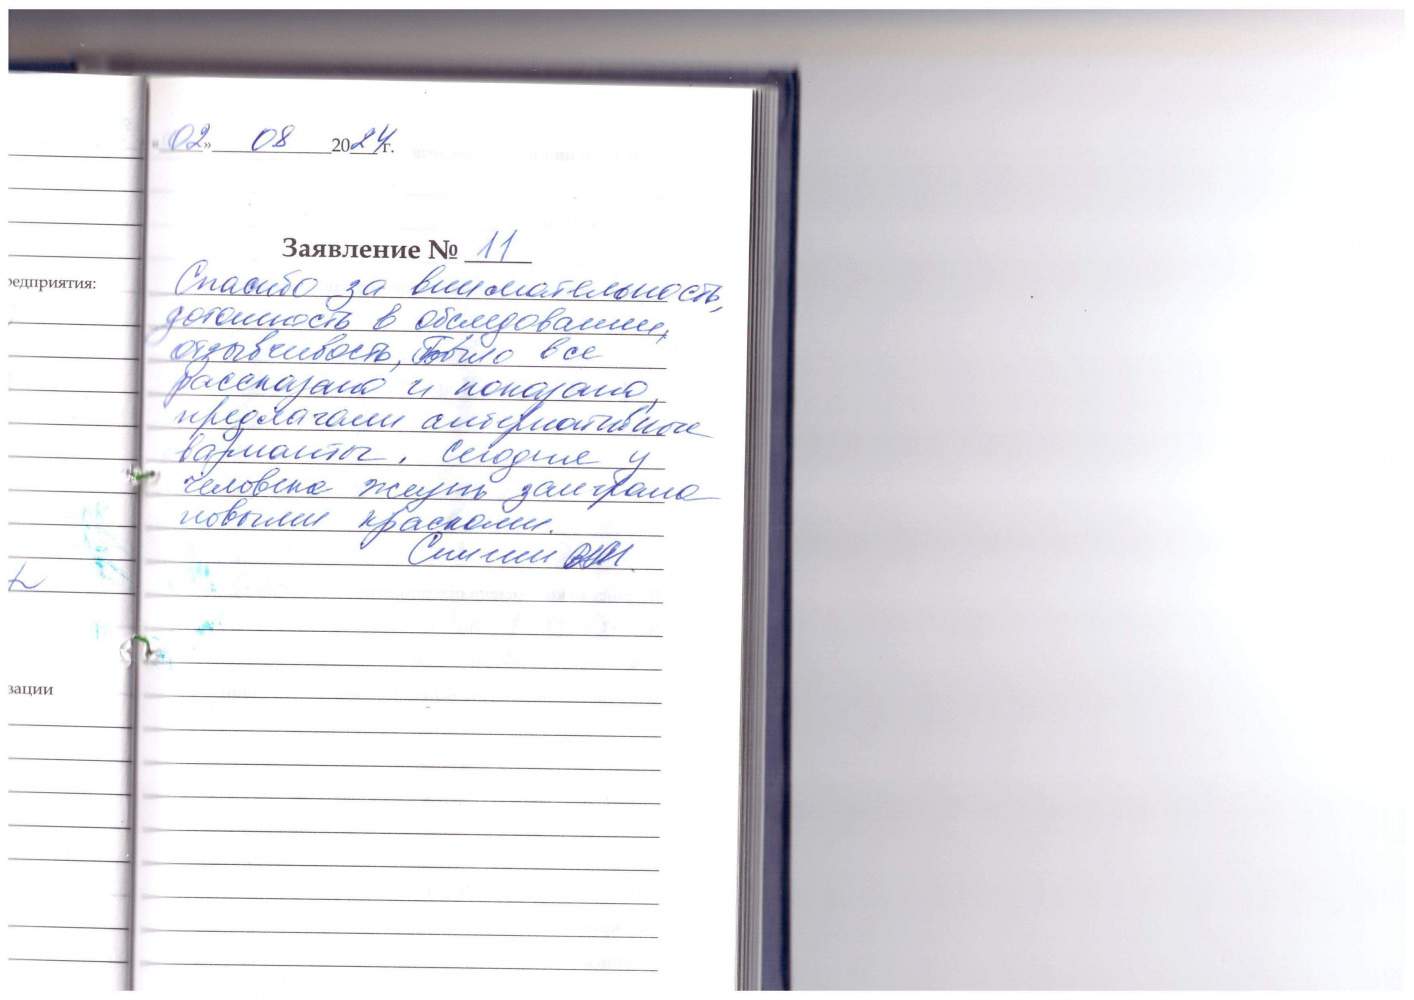 «02» 08 2024 г.
Заявление № 11
редприятия:
Спасибо за внимательность,
дотошность в обследовании,
отзывчивость, было все
рассказано и показано,
предлагали альтернативные
варианты. Сегодня у
человека жизнь заиграла
новыми красками.
зации